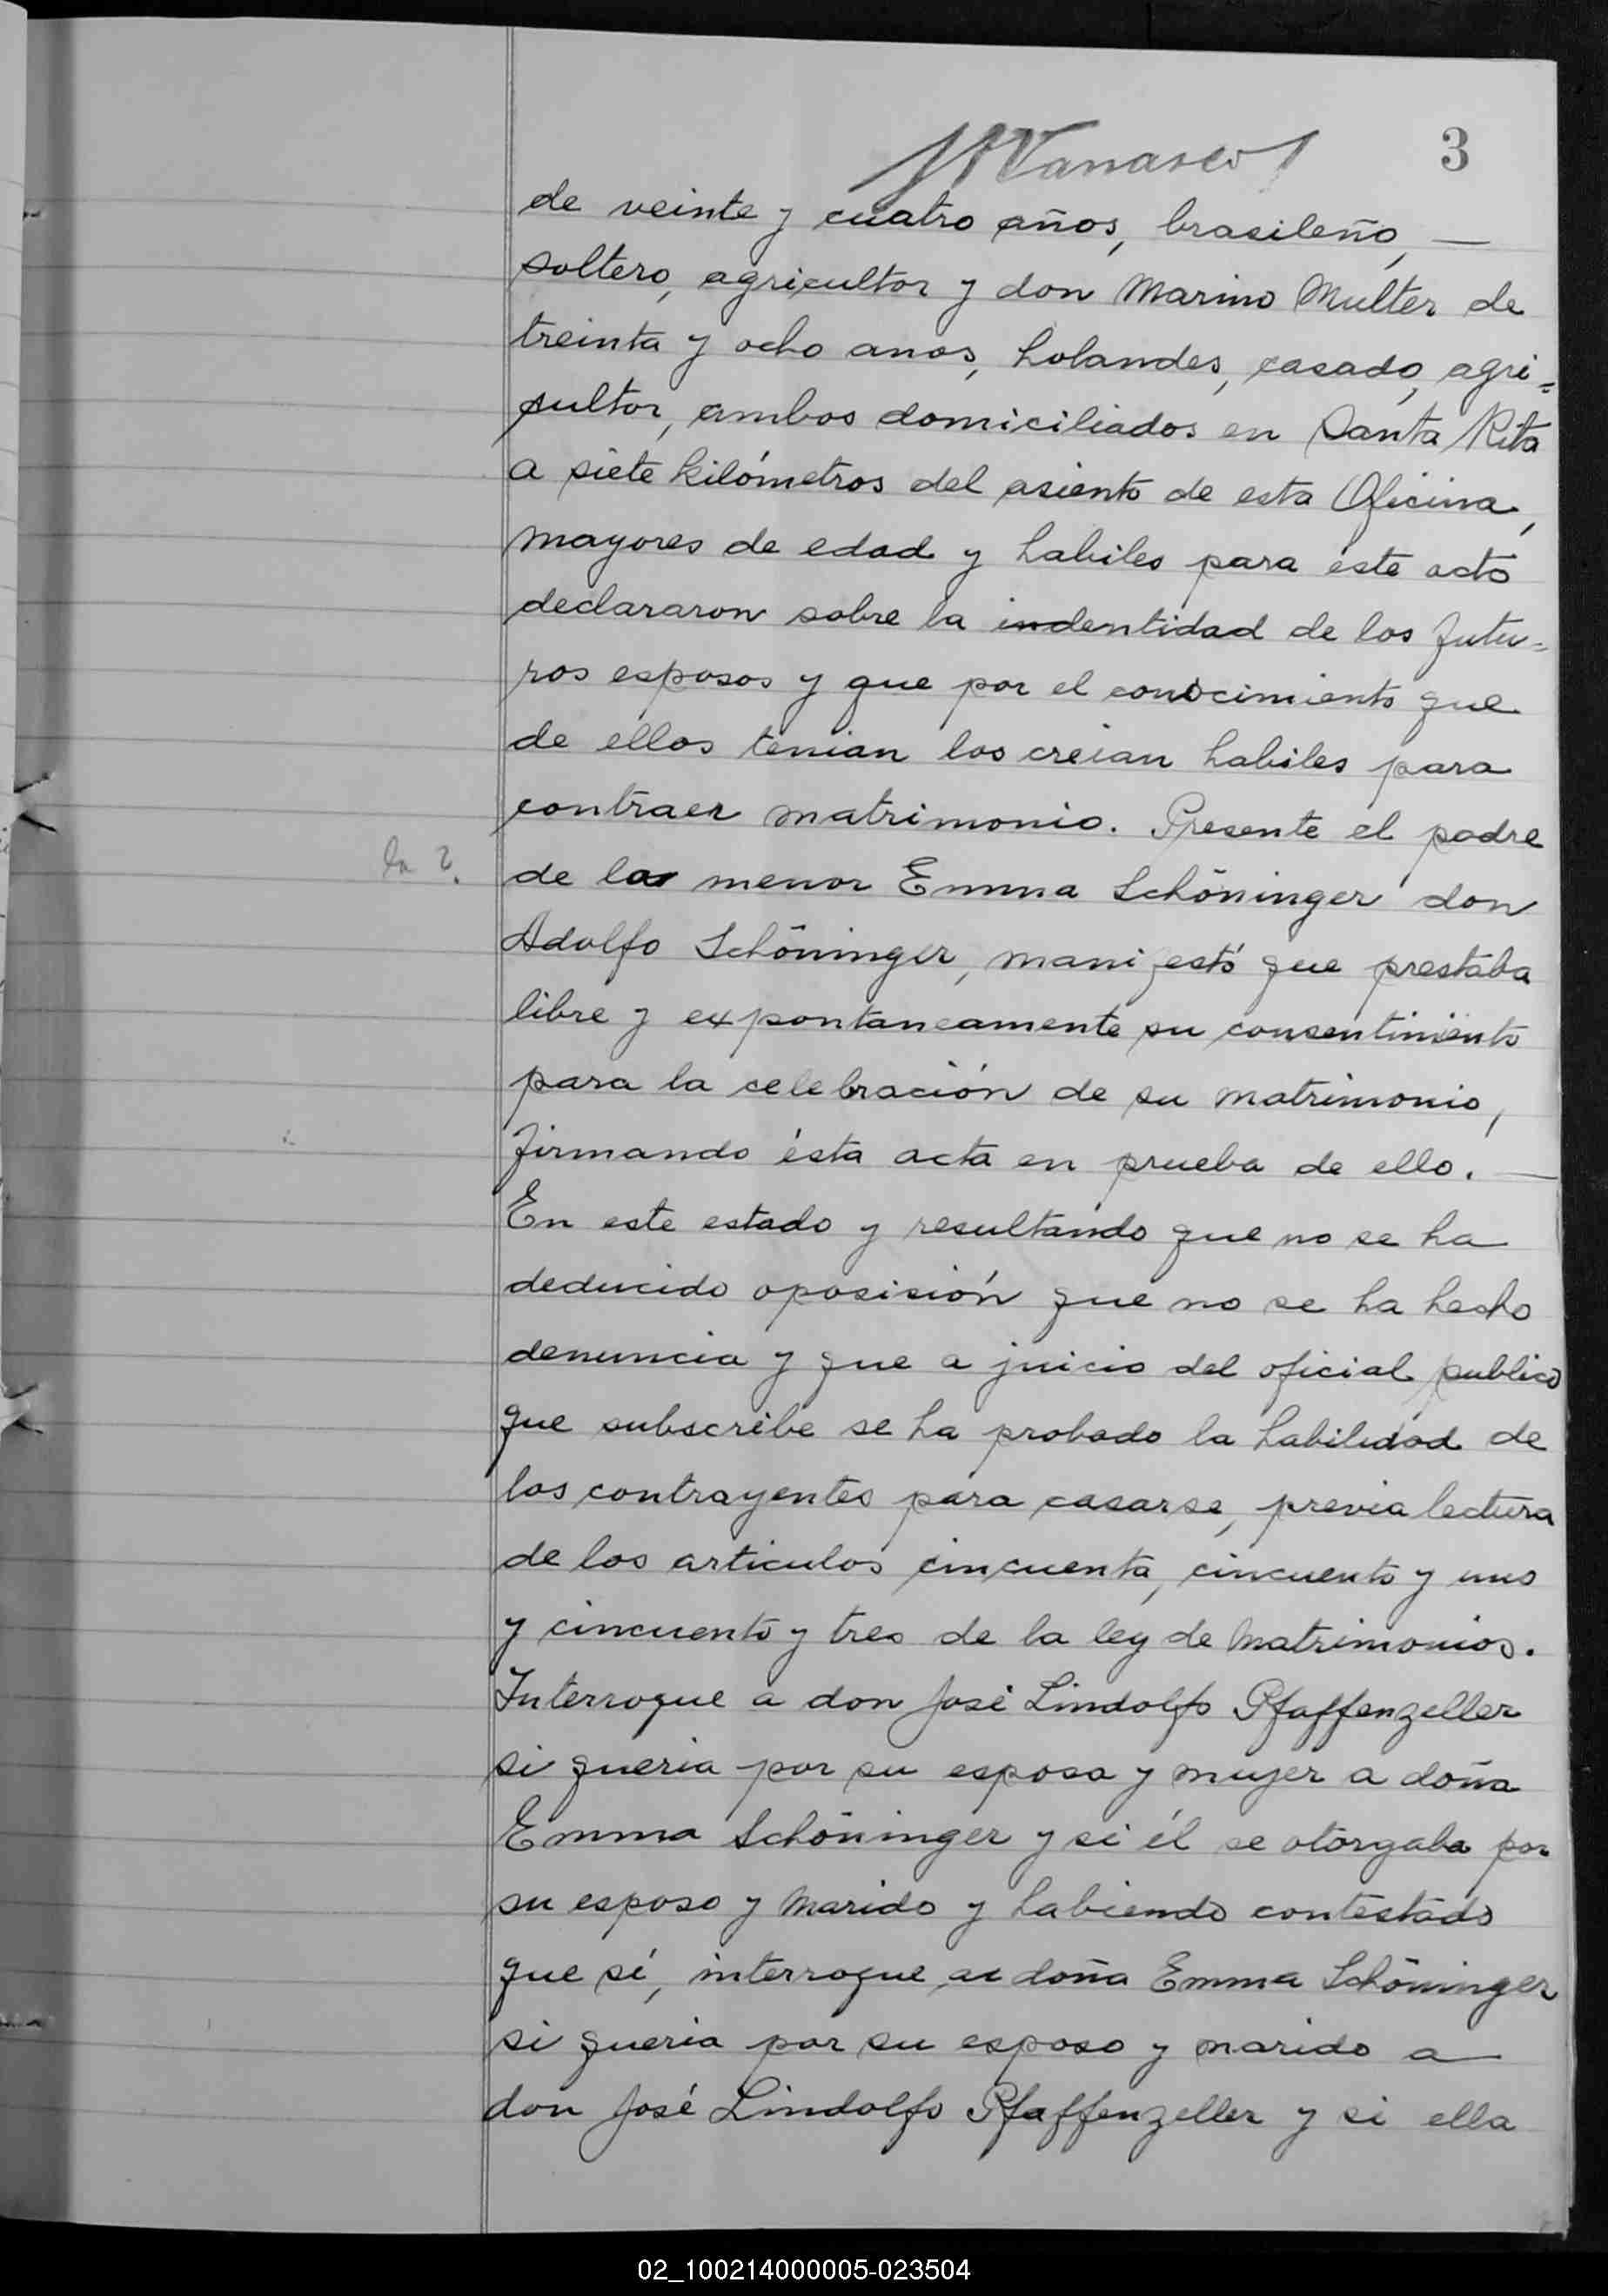 3
de veinte y cuatro años, brasileño, —
soltero, agricultor y don Marino Multer de
treinta y ocho anos, holandes, casado, agri=
cultor, ambos domiciliados en Santa Rita
a siete kilómetros del asiento de esta Oficina,
mayores de edad y habiles para éste acto
declararon sobre la indentidad de los futu=
ros esposos y que por el conocimiento que
de ellos tenian los creian habiles para
contraer matrimonio. Presente el padre
de la menor Emma Schöninger don
Adolfo Schöninger, manifestó que prestaba
libre y expontaneamente su consentimiento
para la celebración de su matrimonio,
firmando ésta acta en prueba de ello. —
En este estado y resultando que no se ha
deducido oposisión que no se ha hecho
denuncia y que a juicio del oficial publico
que subscribe se ha probado la habilidad de
los contrayentes para casarse, previa lectura
de los articulos cincuenta, cincuenta y uno
y cincuenta y tres de la ley de Matrimonios.
Interrogue a don José Lindolfo Pfaffenzeller
si queria por su esposa y mujer a doña
Emma Schöninger y si él se otorgaba por
su esposo y marido y habiendo contestado
que sí, interrogue a doña Emma Schöninger
si queria por su esposo y marido a —
don José Lindolfo Pfaffenzeller y si ella
02_100214000005-023504